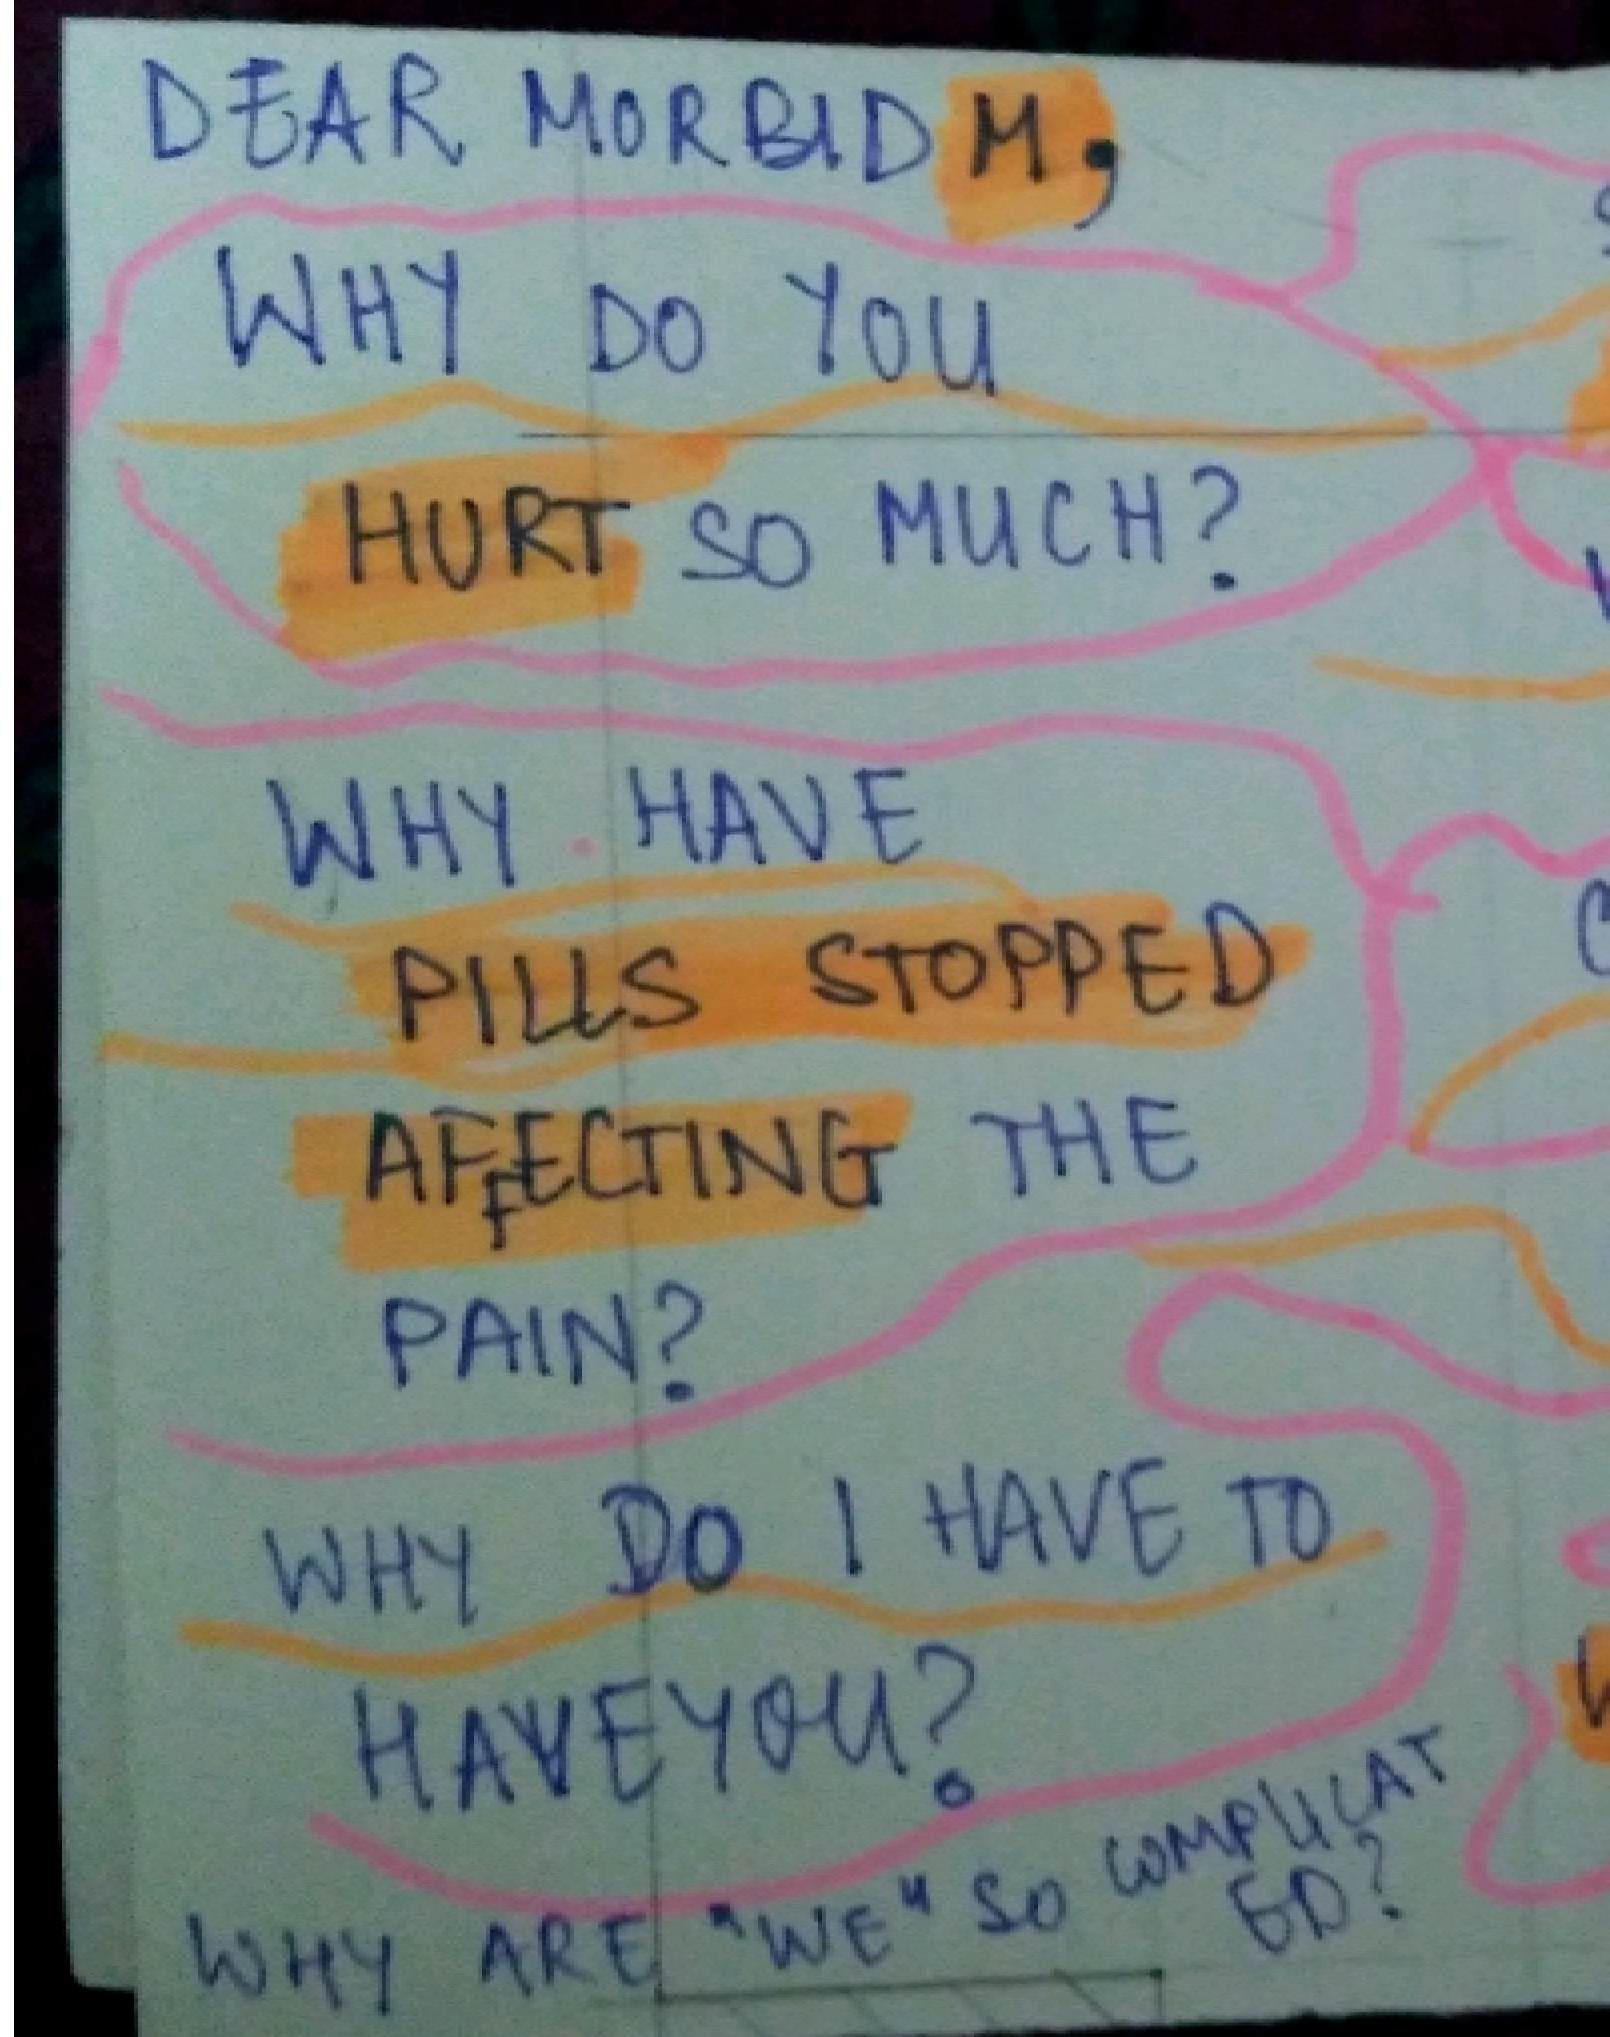 DEAR MORBID M,
WHY DO YOU
HURT SO MUCH?
WHY HAVE
PILLS STOPPED
AFFECTING THE
PAIN?
WHY DO I HAVE TO
HAVE YOU?
WHY ARE "WE" SO COMPLICAT
ED?